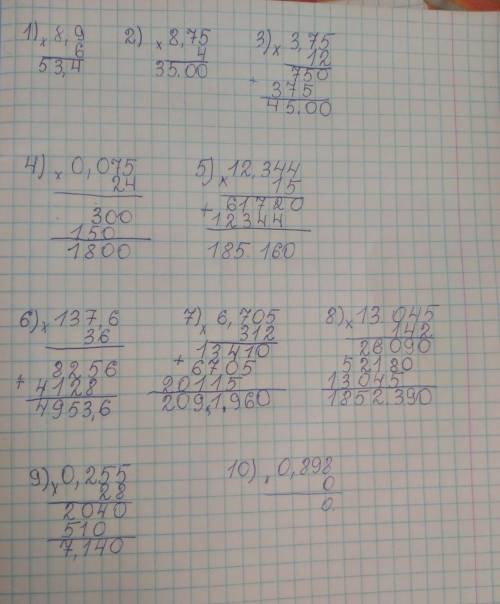 1) × 8,9
6
53,4
2) × 8,75
4
35.00
3) × 3,75
12
+ 750
375
45.00
4) × 0,075
24
300
150
1800
5) × 12,344
15
+ 61720
12344
185.160
6) × 137,6
36
+ 8256
4128
4953,6
7) × 6,705
312
+ 13410
6705
20115
209,1.960
8) × 13.045
142
26090
52180
13045
1852.390
9) × 0,255
28
2040
510
7,140
10) × 0,898
0
0.